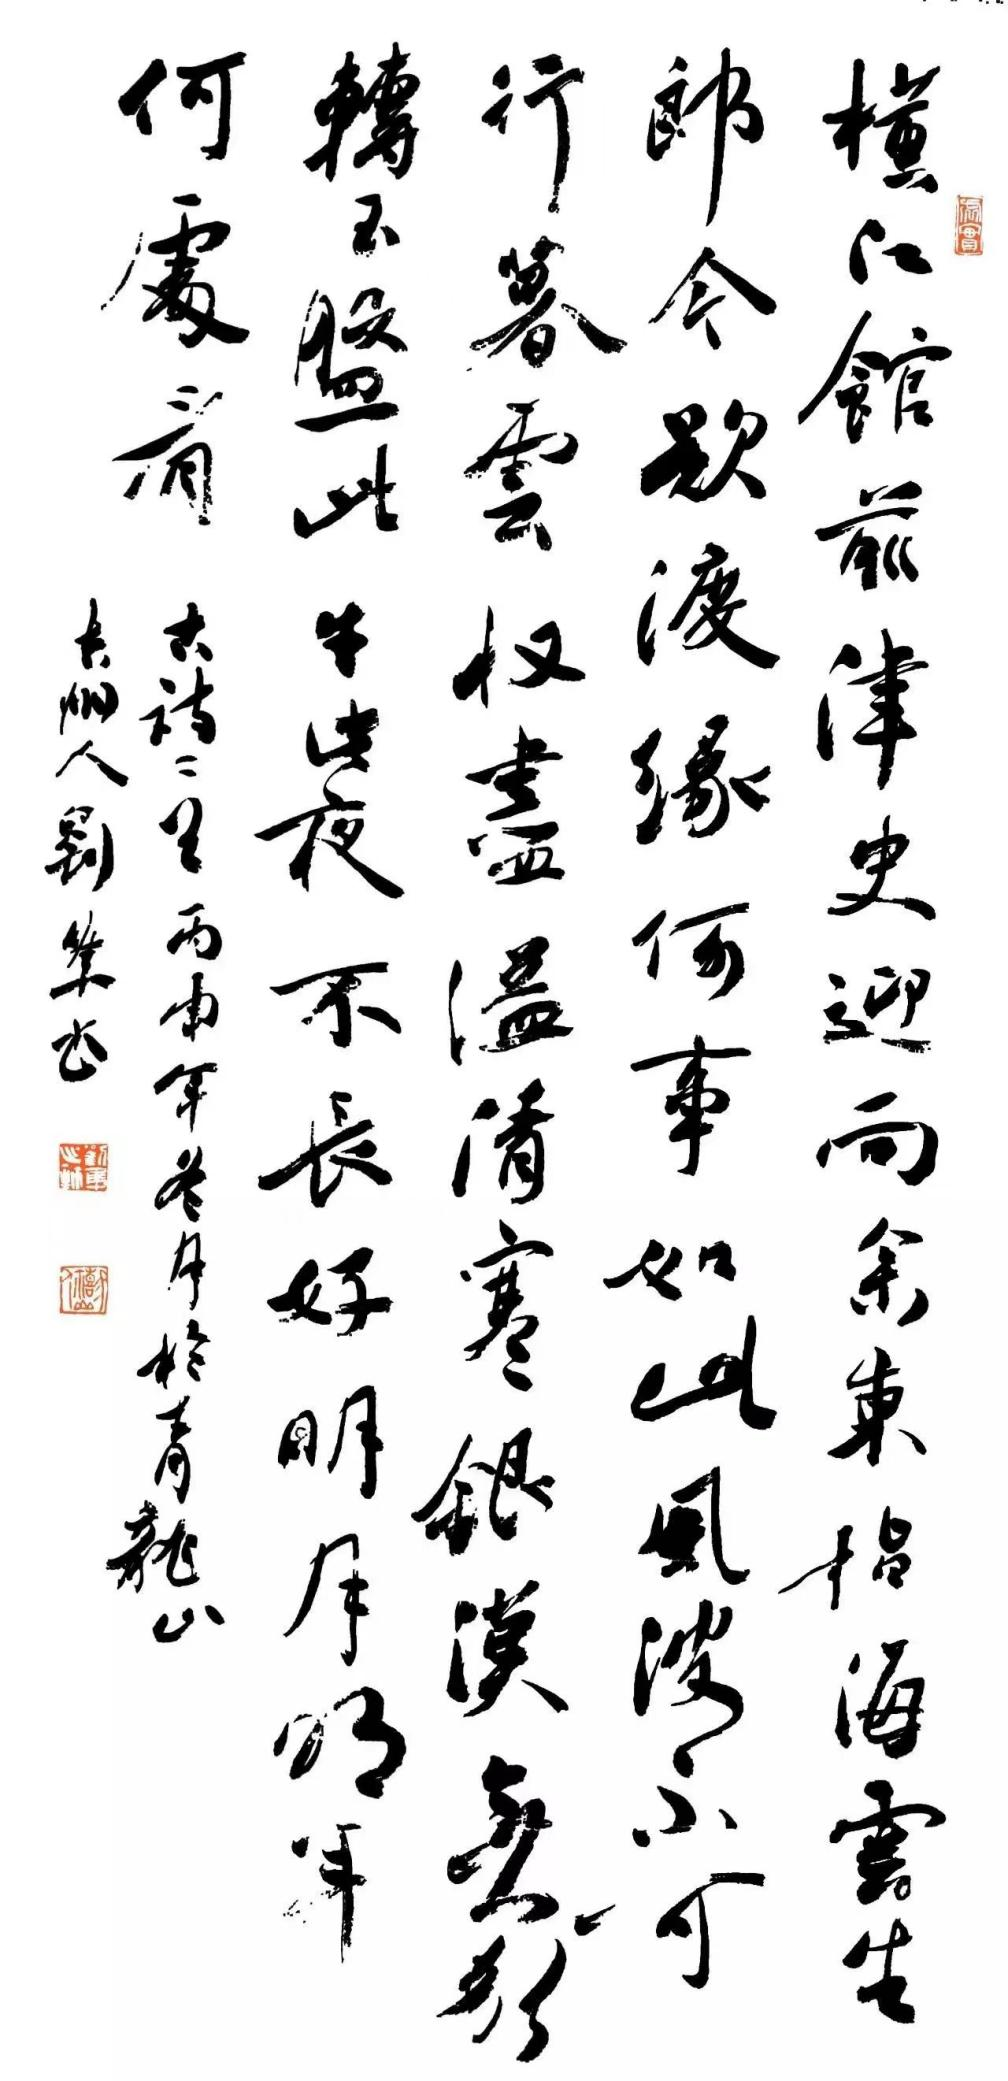 橫江館前津吏迎向余東指海雲生
郎今欲渡緣何事如此風波不可
行暮雲收盡溢清寒銀漢無聲
轉玉盤此生此夜不長好明月明年
何處看
古詩二首丙申年冬月於青龍山
潮人劉書